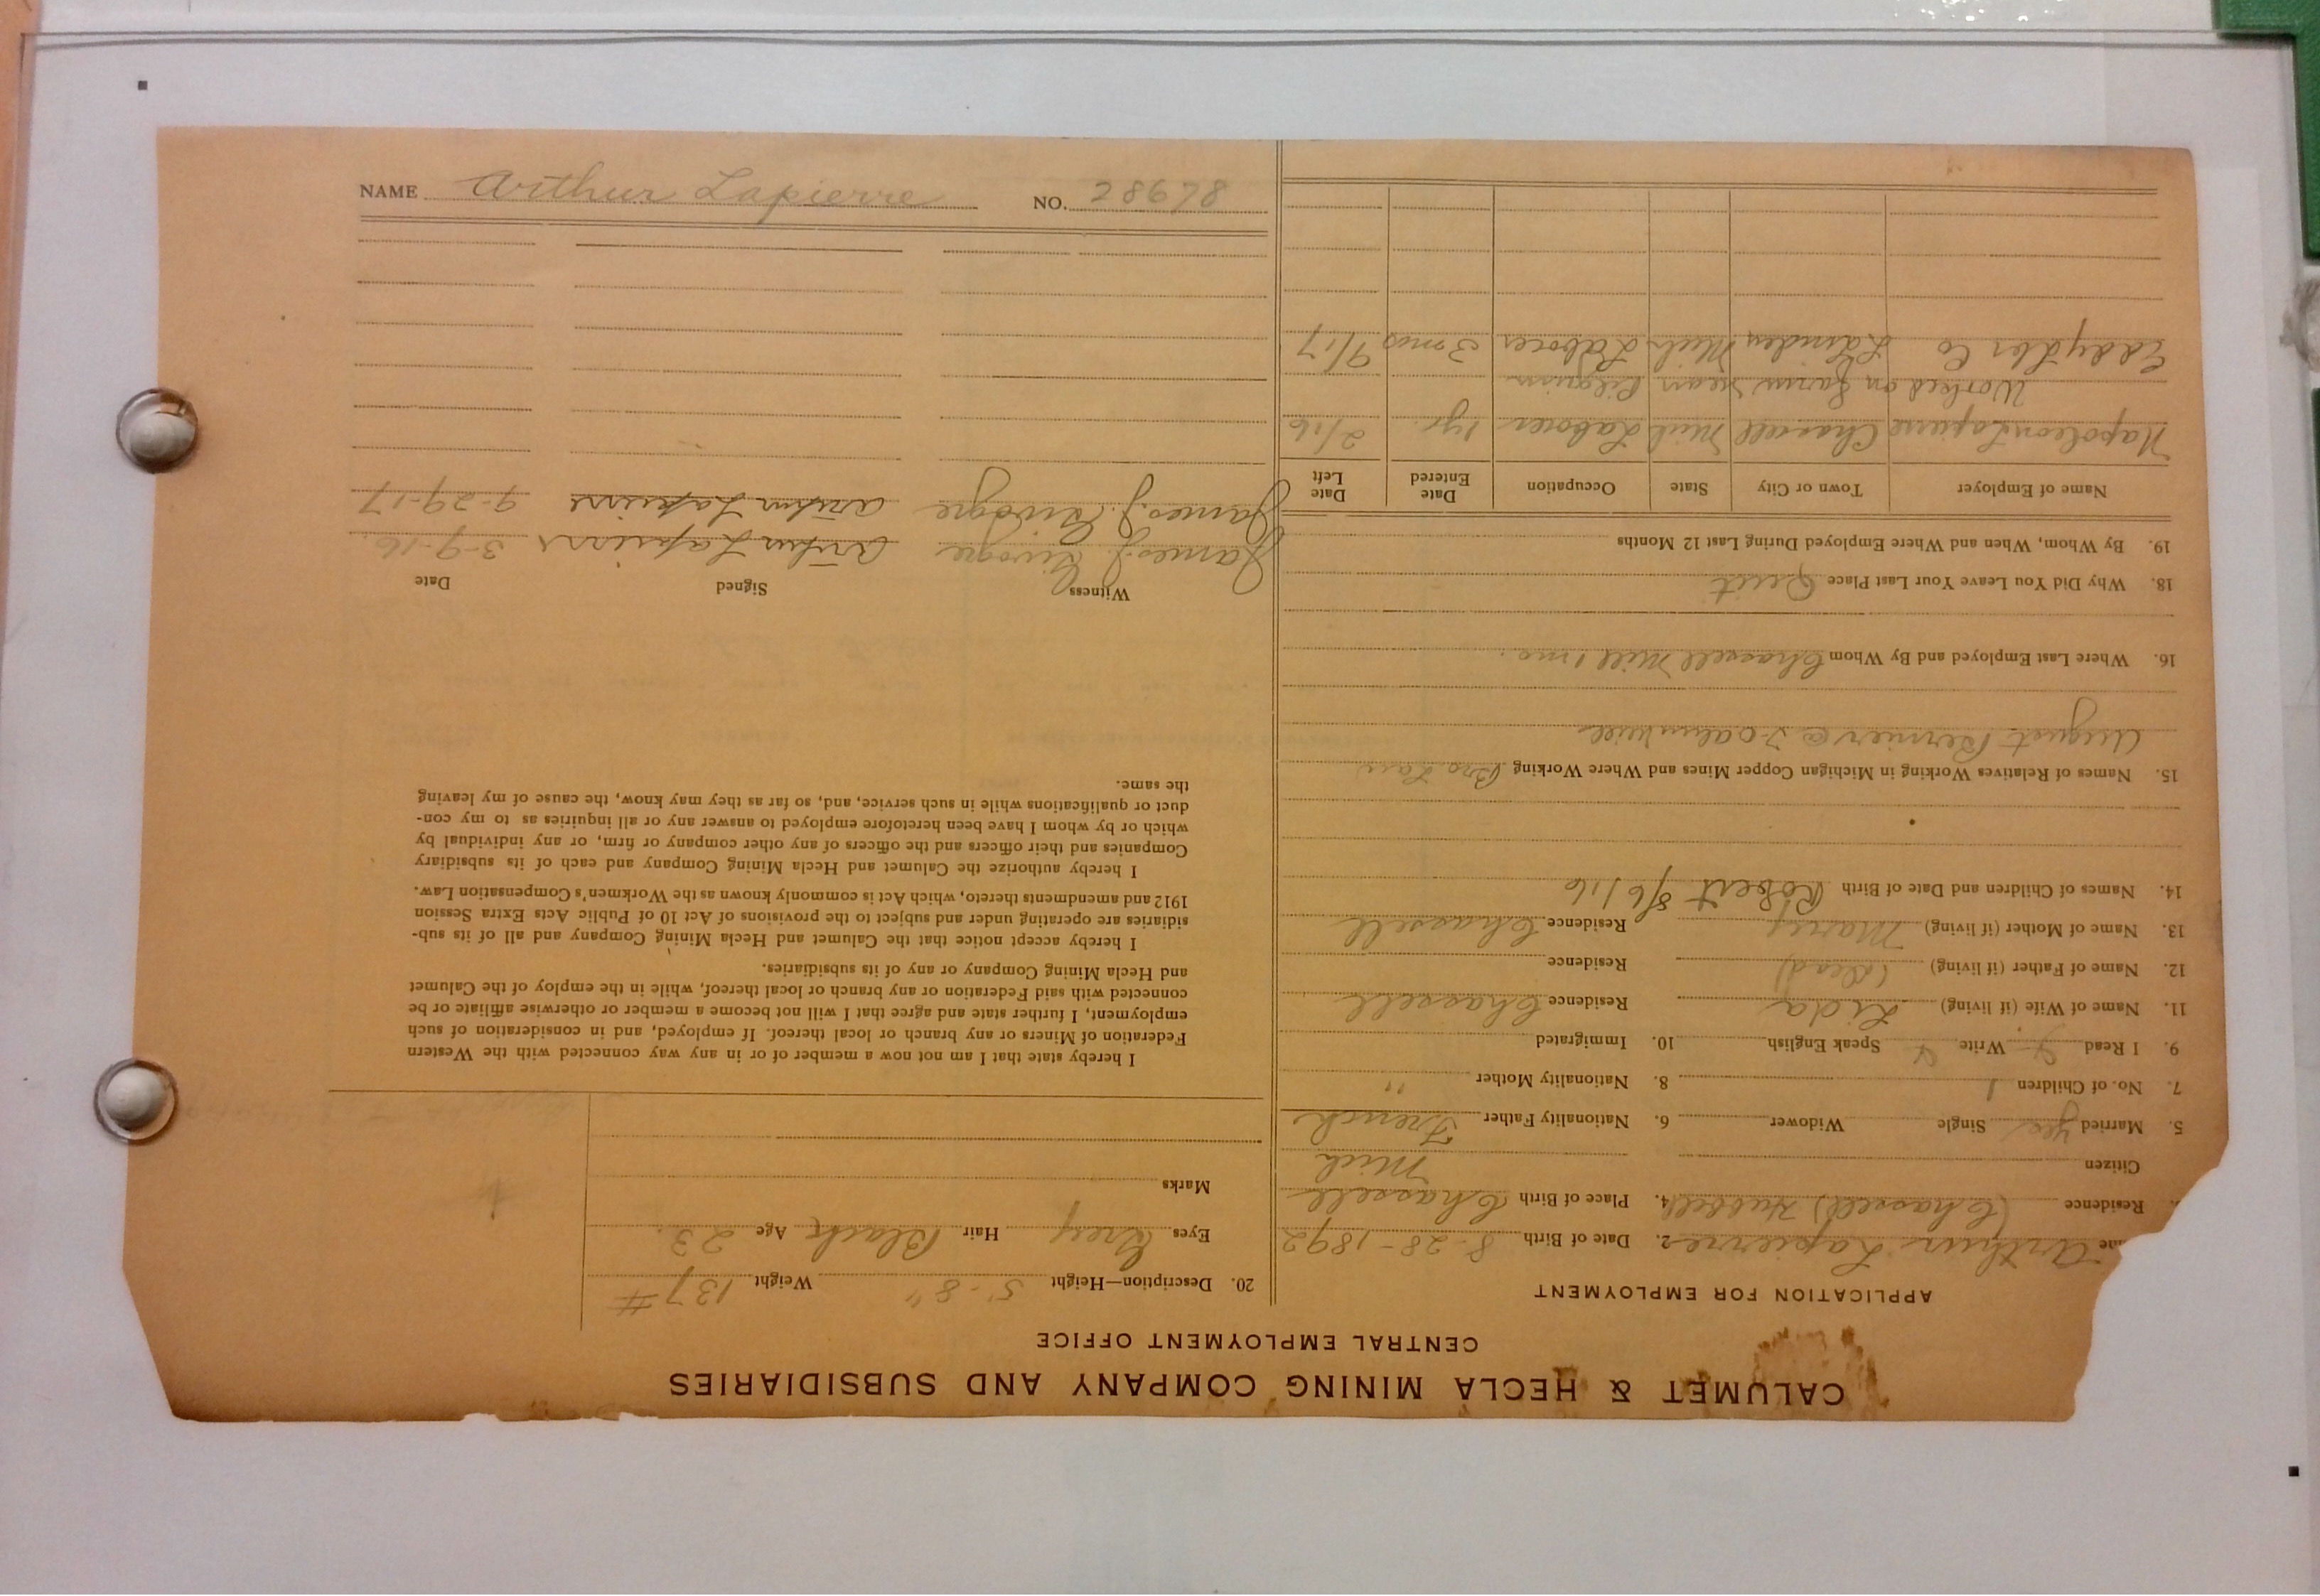 CALUMET & HECLA MINING COMPANY AND SUBSIDIARIES
CENTRAL EMPLOYMENT OFFICE
APPLICATION FOR EMPLOYMENT
me Arthur Lapierre 2. Date of Birth 8-28-1892
Residence (Chassell) Hubbell 4. Place of Birth Chassell
Citizen Mich
5. Married yes Single Widower 6. Nationality Father French
7. No. of Children 1 8. Nationality Mother "
9. I Read Write Speak English 10. Immigrated
11. Name of Wife (if living) Lida Residence Chassell
12. Name of Father (if living) (Dead) Residence
13. Name of Mother (if living) Mary Residence Chassell
14. Names of Children and Date of Birth Robert 8/6/16
15. Names of Relatives Working in Michigan Copper Mines and Where Working Bro Law
August Bernier @
16. Where Last Employed and By Whom Chassell Mill 1 mo.
18. Why Did You Leave Your Last Place Quit
19. By Whom, When and Where Employed During Last 12 Months
Name of Employer Town or City State Occupation Date Entered Date Left
Napoleon Lapierre Chassell Mich Laborer 1 yr. 2/16
Worked on farm near Pilgrim
Eddy Lbr Co Mich Laborer 3 mos 9/17
20. Description—Height 5'-8" Weight 137 #
Eyes Grey Hair Black Age 23.
Marks
I hereby state that I am not now a member of or in any way connected with the Western
Federation of Miners or any branch or local thereof. If employed, and in consideration of such
employment, I further state and agree that I will not become a member or otherwise affiliate or be
connected with said Federation or any branch or local thereof, while in the employ of the Calumet
and Hecla Mining Company or any of its subsidiaries.
I hereby accept notice that the Calumet and Hecla Mining Company and all of its sub-
sidiaries are operating under and subject to the provisions of Act 10 of Public Acts Extra Session
1912 and amendments thereto, which Act is commonly known as the Workmen's Compensation Law.
I hereby authorize the Calumet and Hecla Mining Company and each of its subsidiary
Companies and their officers and the officers of any other company or firm, or any individual by
which or by whom I have been heretofore employed to answer any or all inquiries as to my con-
duct or qualifications while in such service, and, so far as they may know, the cause of my leaving
the same.
Witness Signed Date
James J. Arthur Lapierre 3-9-16
James J. Arthur Lapierre 9-29-17
NAME Arthur Lapierre NO. 28678